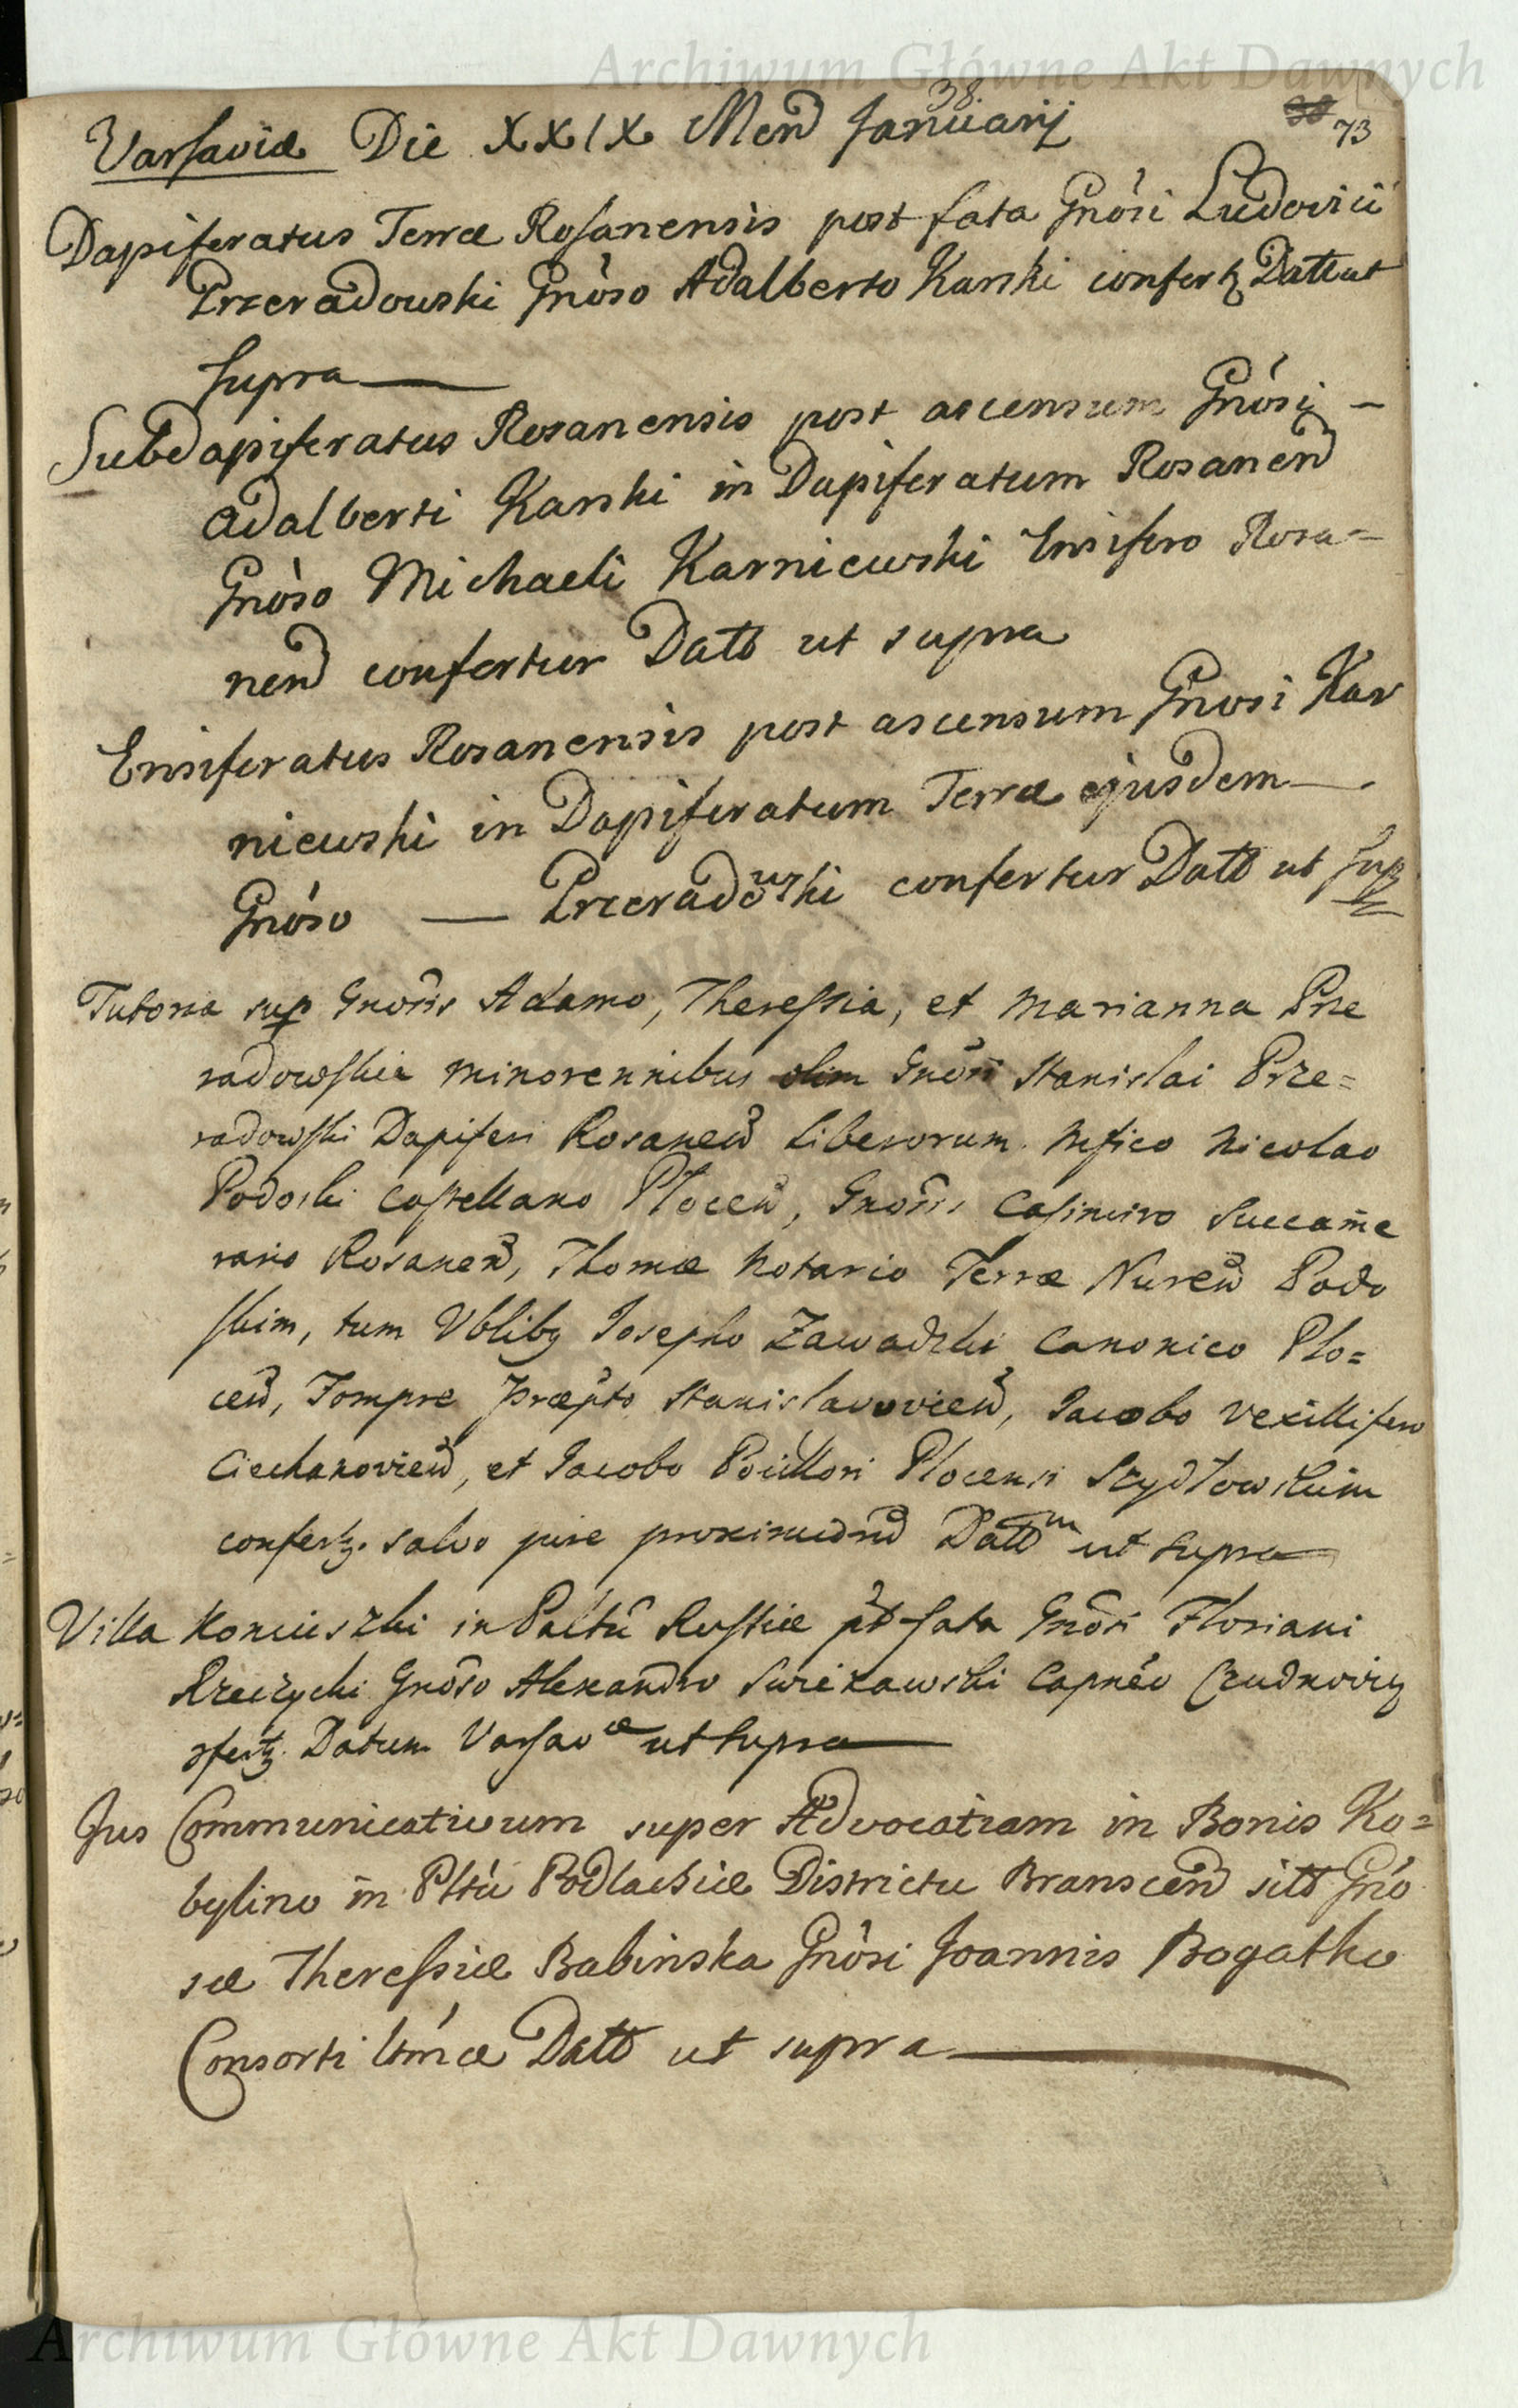 Archiwum Główne Akt Dawnych
38.
73
Varsaviæ Die XXIX Mend Januarij
Dapiferatus Terræ Rosanensis post fata Gnósi Ludovici
Przeradowski Gnóso Adalberto Karski confertz Datt ut
supra
Subdapiferatus Rosanensis post ascensum Gnósi
Adalberti Karski in Dapiferatum Rosanend
Gnóso Michaeli Karniewski Ensifero Rosa=
nend confertur Datt ut supra
Ensiferatus Rosanensis post ascensum Gnosi Kar
niewski in Dapiferatum Terræ ejusdem
Gnóso — Przeradowski confertur Datt ut sup
Tutoria sup Gnosis Adamo, Theressia, et Marianna Prze
radowskie minorennibus olim Gnosi Stanislai Prze=
radowski Dapiferi Rosanen Liberorum. Mfico Nicolao
Podoski Castellano Plocen, Gnosis Casimiro Succame
rario Rosanen, Thomæ Notario Terræ Nuren Podo
skim, tum Vblibq Josepho Zawadzki Canonico Plo=
cen, Jompre Præpto Stanislavovien, Jacobo Vexillifero
Ciechanovien, et Jacobo Pocillori Plocensi Szydłowskim
confertz. salvo jure Datt ut supra
Villa Koniuszki in Palttu Russiæ pt fata Gnosi Floriani
Rzeczycki Gnoso Alexandro Capnéo
Datum Varsaviæ ut supra
Jus Communicativum super Advocatiam in Bonis Ko=
bylino in Pltu Podlachiæ Districtu Branscen sitt Gno
sæ Theressiæ Babinska Gnósi Joannis Bogatko
Consorti Datt ut supra
Archiwum Główne Akt Dawnych